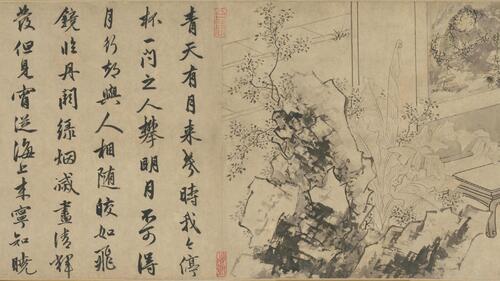 青天有月來幾時我今停
杯一問之人攀明月不可得
月行却與人相隨皎如飛
鏡臨丹闕緑烟滅盡清輝
發但見宵從海上來寧知曉